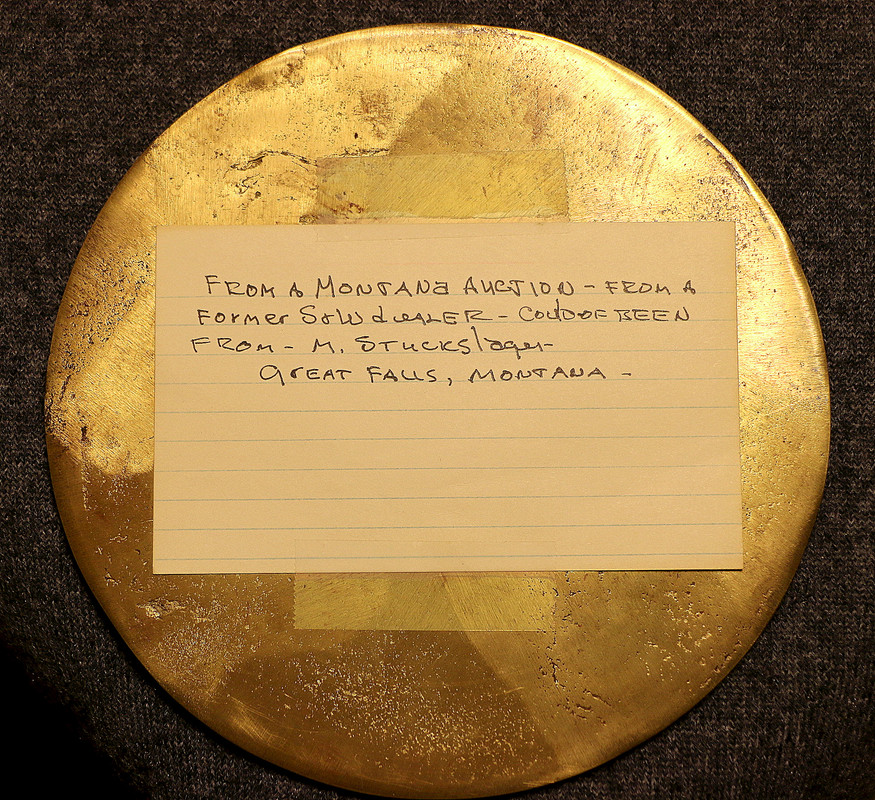 FROM A MONTANA AUCTION - FROM A
FORMER S&W DEALER - COULDOF BEEN
FROM - M. STUCKSlager
GREAT FALLS, MONTANA -